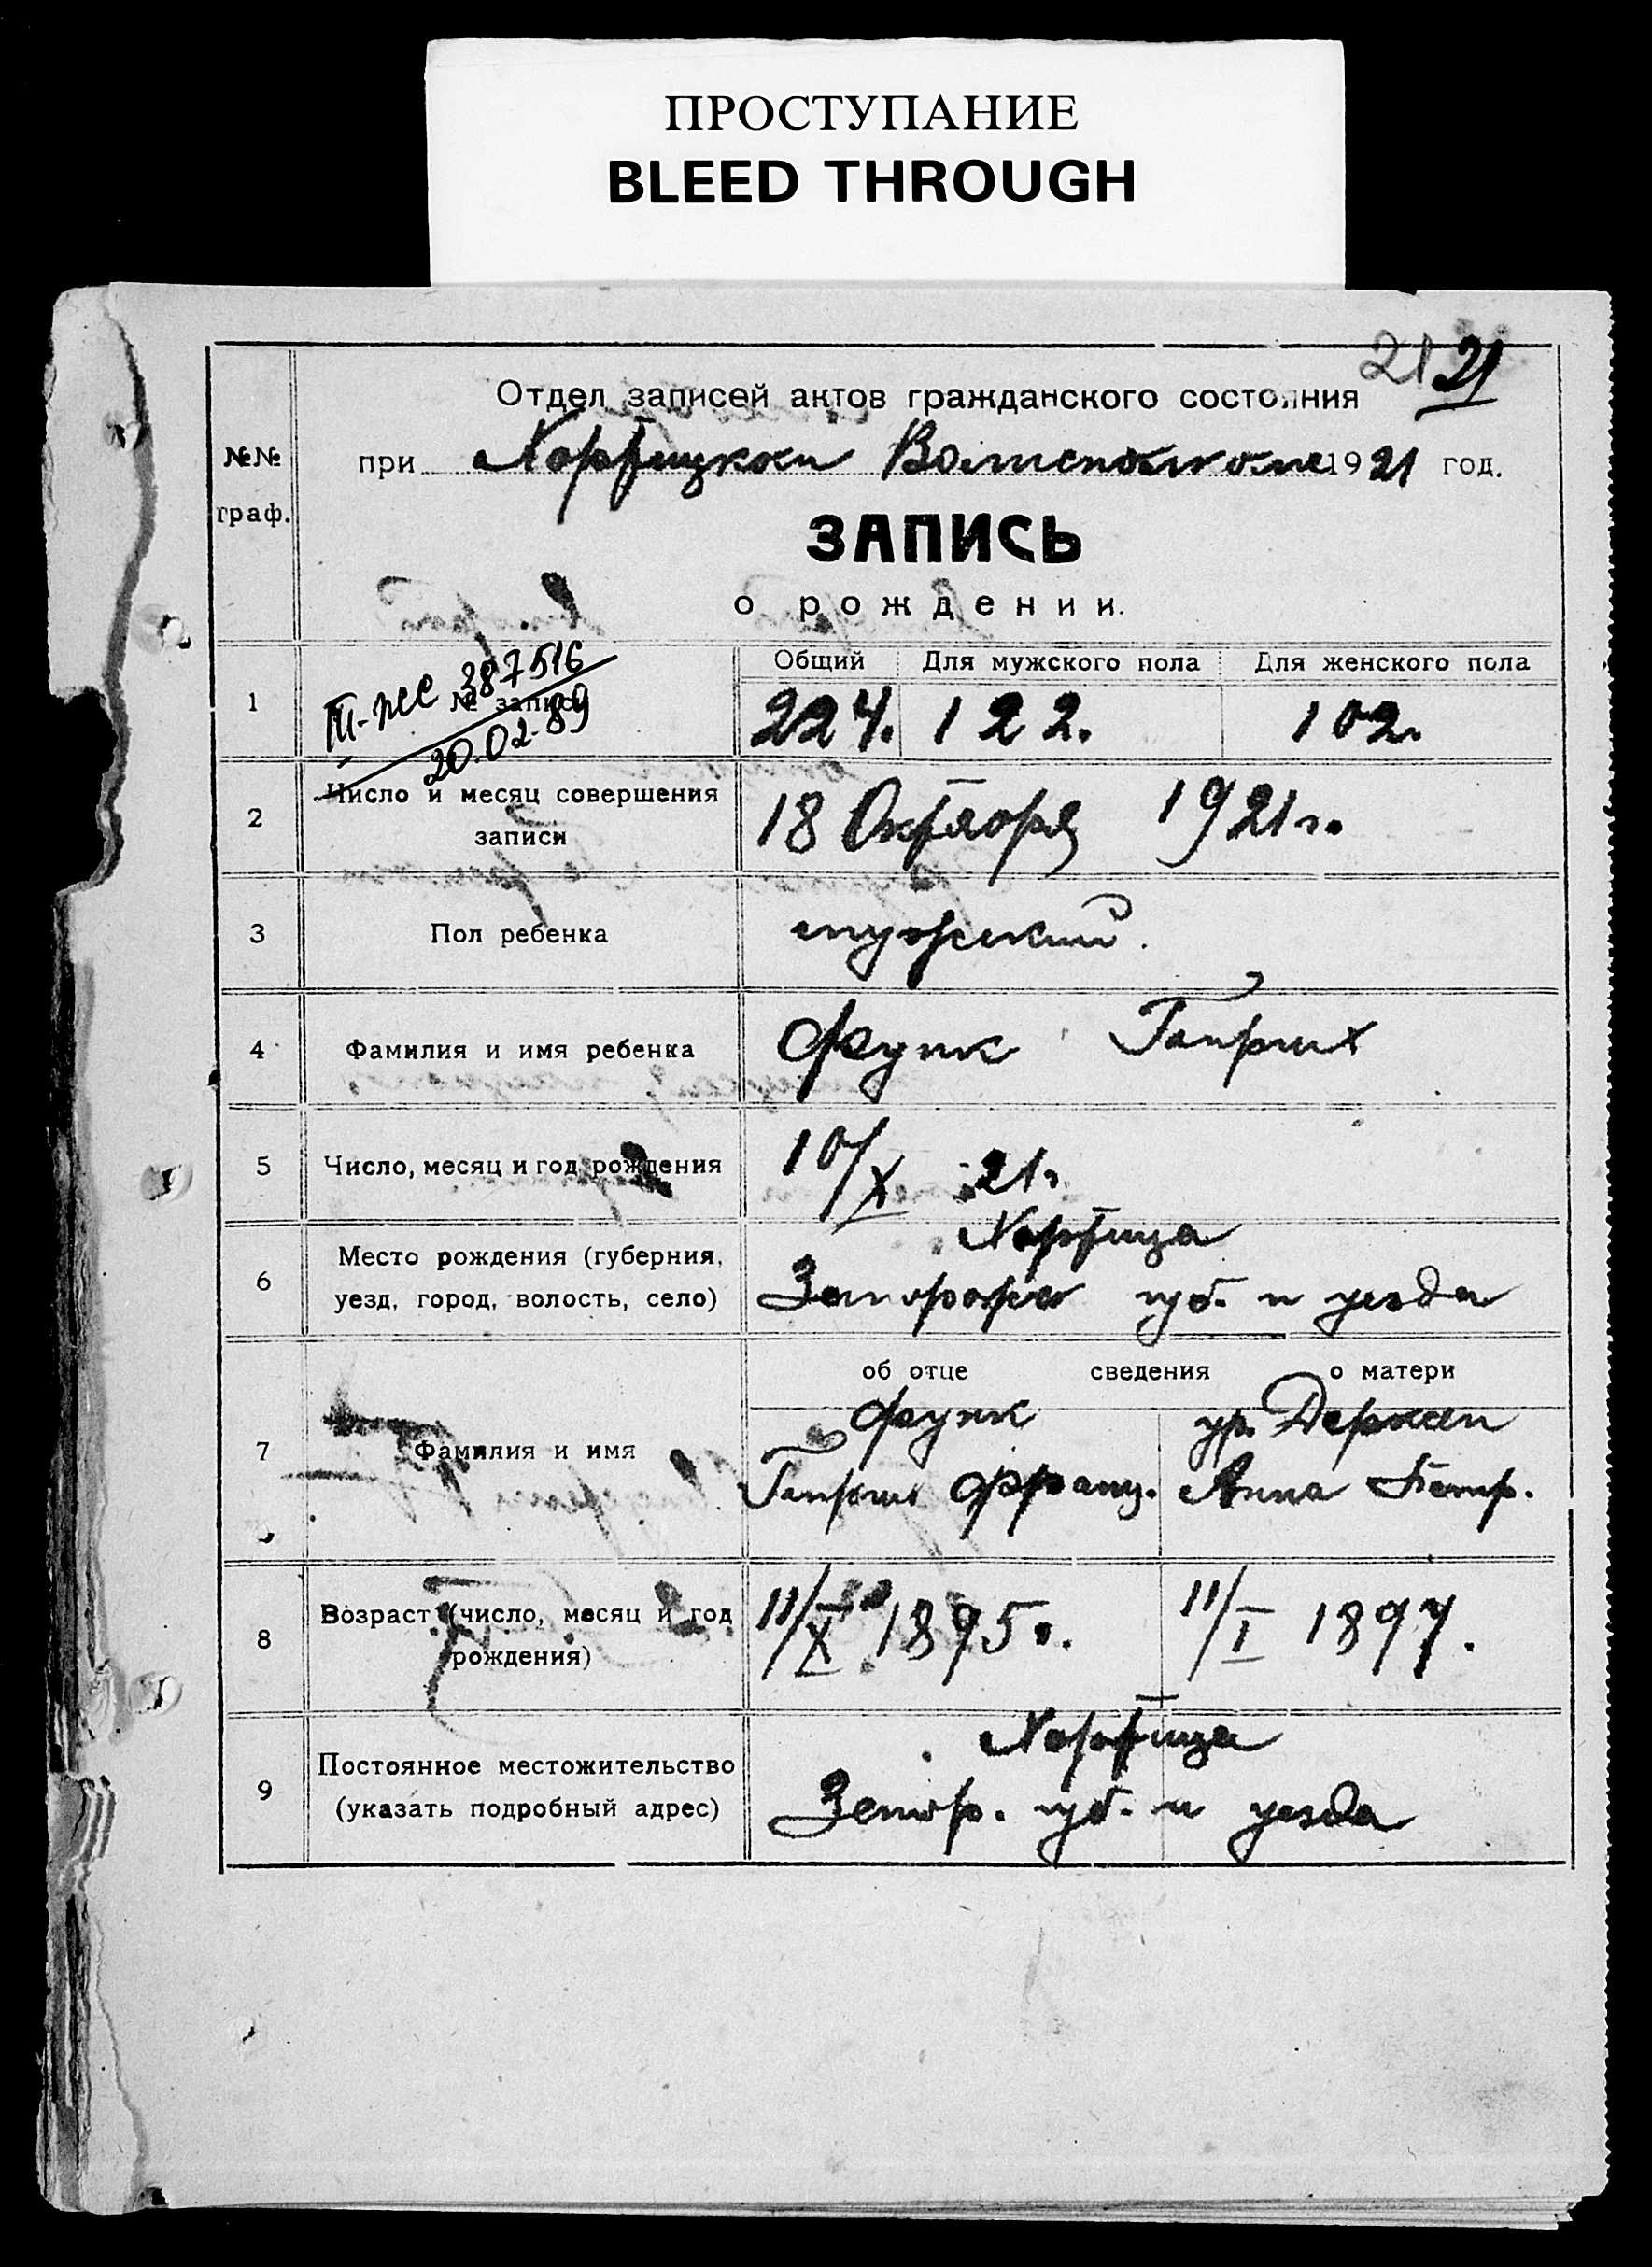 ПРОСТУПАНИЕ
BLEED THROUGH
21 21
Отдел записей актов гражданского состояния
№№ граф.
при Хортицком 1921 год.
ЗАПИСЬ
о рождении.
Общий Для мужского пола Для женского пола
1 № записи 224. 122. 102.
III-ЖС 387516
20.02.89
2 Число и месяц совершения
записи
18 Октября 1921 г.
3 Пол ребенка мужский.
4 Фамилия и имя ребенка Функ Генрих
5 Число, месяц и год рождения 10/X 21 г.
Хортица
6 Место рождения (губерния,
уезд, город, волость, село)
губ. и уезда
об отце сведения о матери
Функ ур.
7 Фамилия и имя
Генрих Франц. Анна Петр.
8 Возраст (число, месяц и год
рождения)
11/X 1895 г. 11/I 1897.
Хортица
9 Постоянное местожительство
(указать подробный адрес)
Запор. губ. и уезда